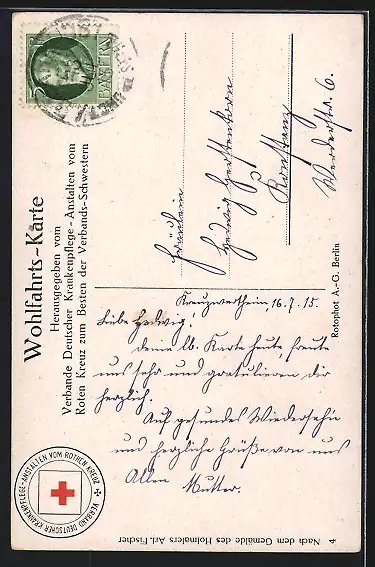 Wohlfahrts-Karte
Herausgegeben vom
Verbande Deutscher Krankenpflege-Anstalten vom
Roten Kreuz zum Besten der Verbands-Schwestern
BAYERN
5
Fräulein
Hedwig Herstenkorn
Konstanz
Werderstr. 6.
Kreuzwertheim, 16.7.15.
Liebe Hedwig!
Deine lb. Karte heute, freute
uns sehr und gratulieren dir
herzlich.
Auf gesundes Wiedersehn
und herzliche Grüße von uns
Allen Mutter.
VERBAND DEUTSCHER KRANKENPFLEGE-ANSTALTEN VOM ROTHEN KREUZ
Rotophot A.-G. Berlin
4 Nach dem Gemälde des Hofmalers Art. Fischer